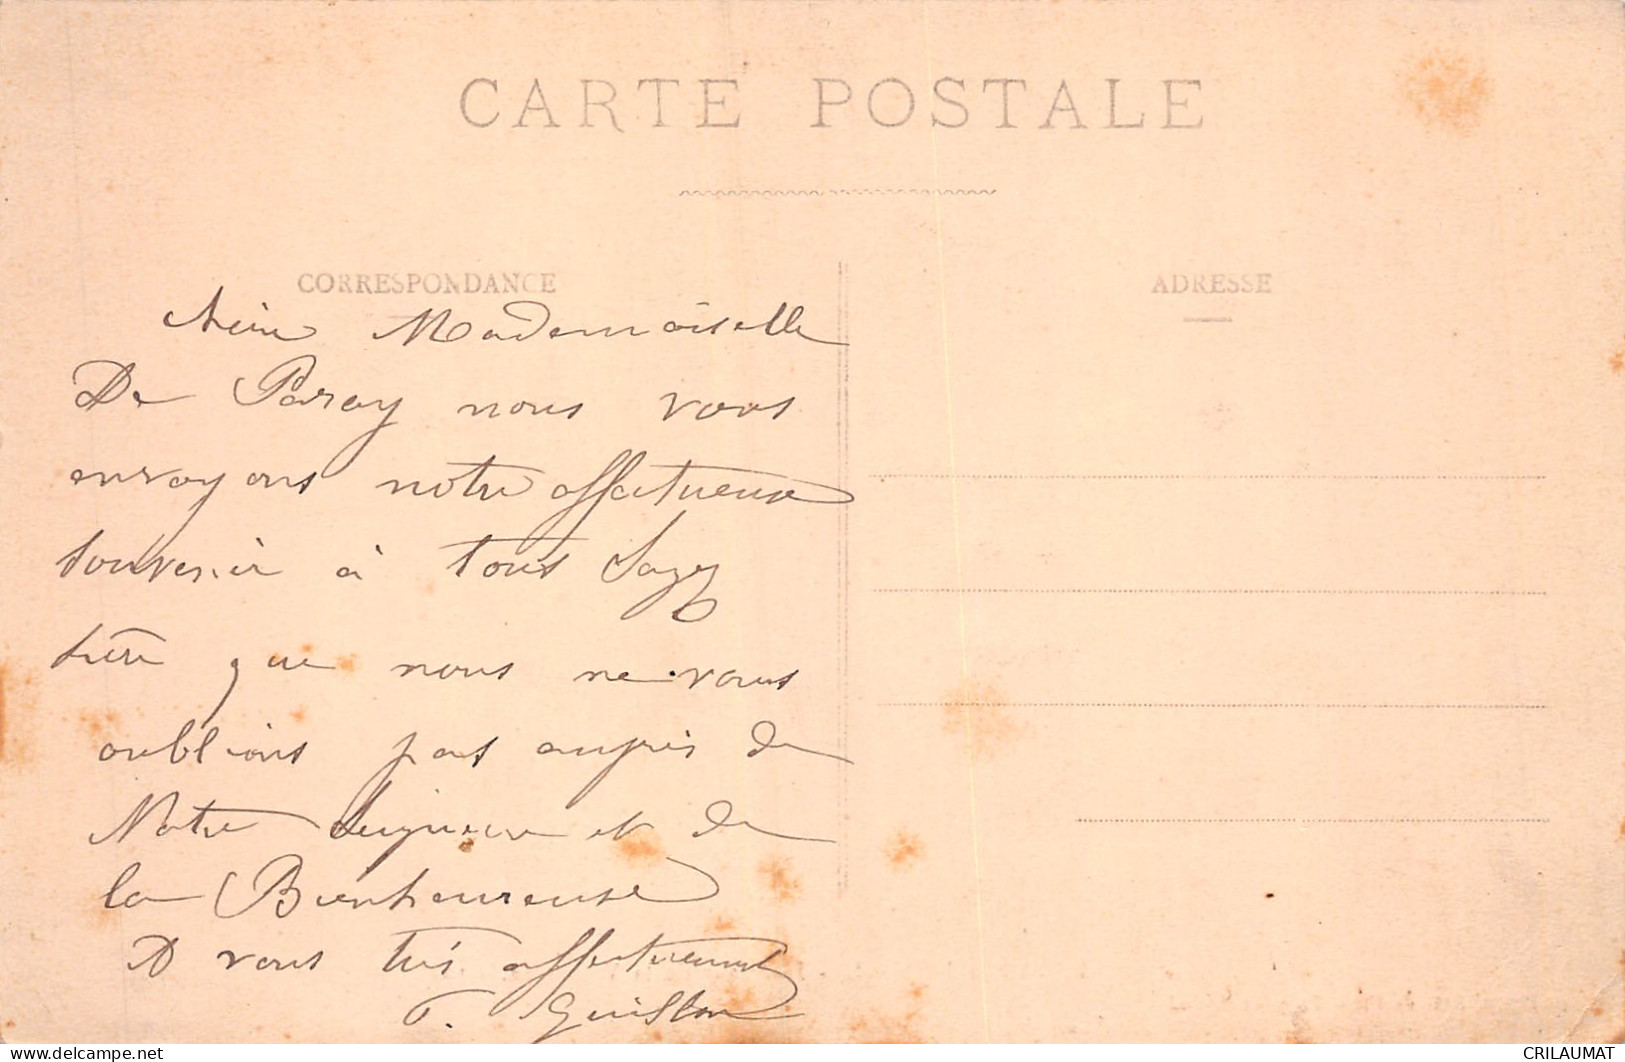 CARTE POSTALE
CORRESPONDANCE
ADRESSE
Mademoiselle
De Paray nous vous
envoyons notre affectueux
souvenir à tous Soyez
que nous ne vous
oublions pas auprès de
Notre Seigneur et de
la Bienheureuse
A vous très affectueusement
CRILAUMAT